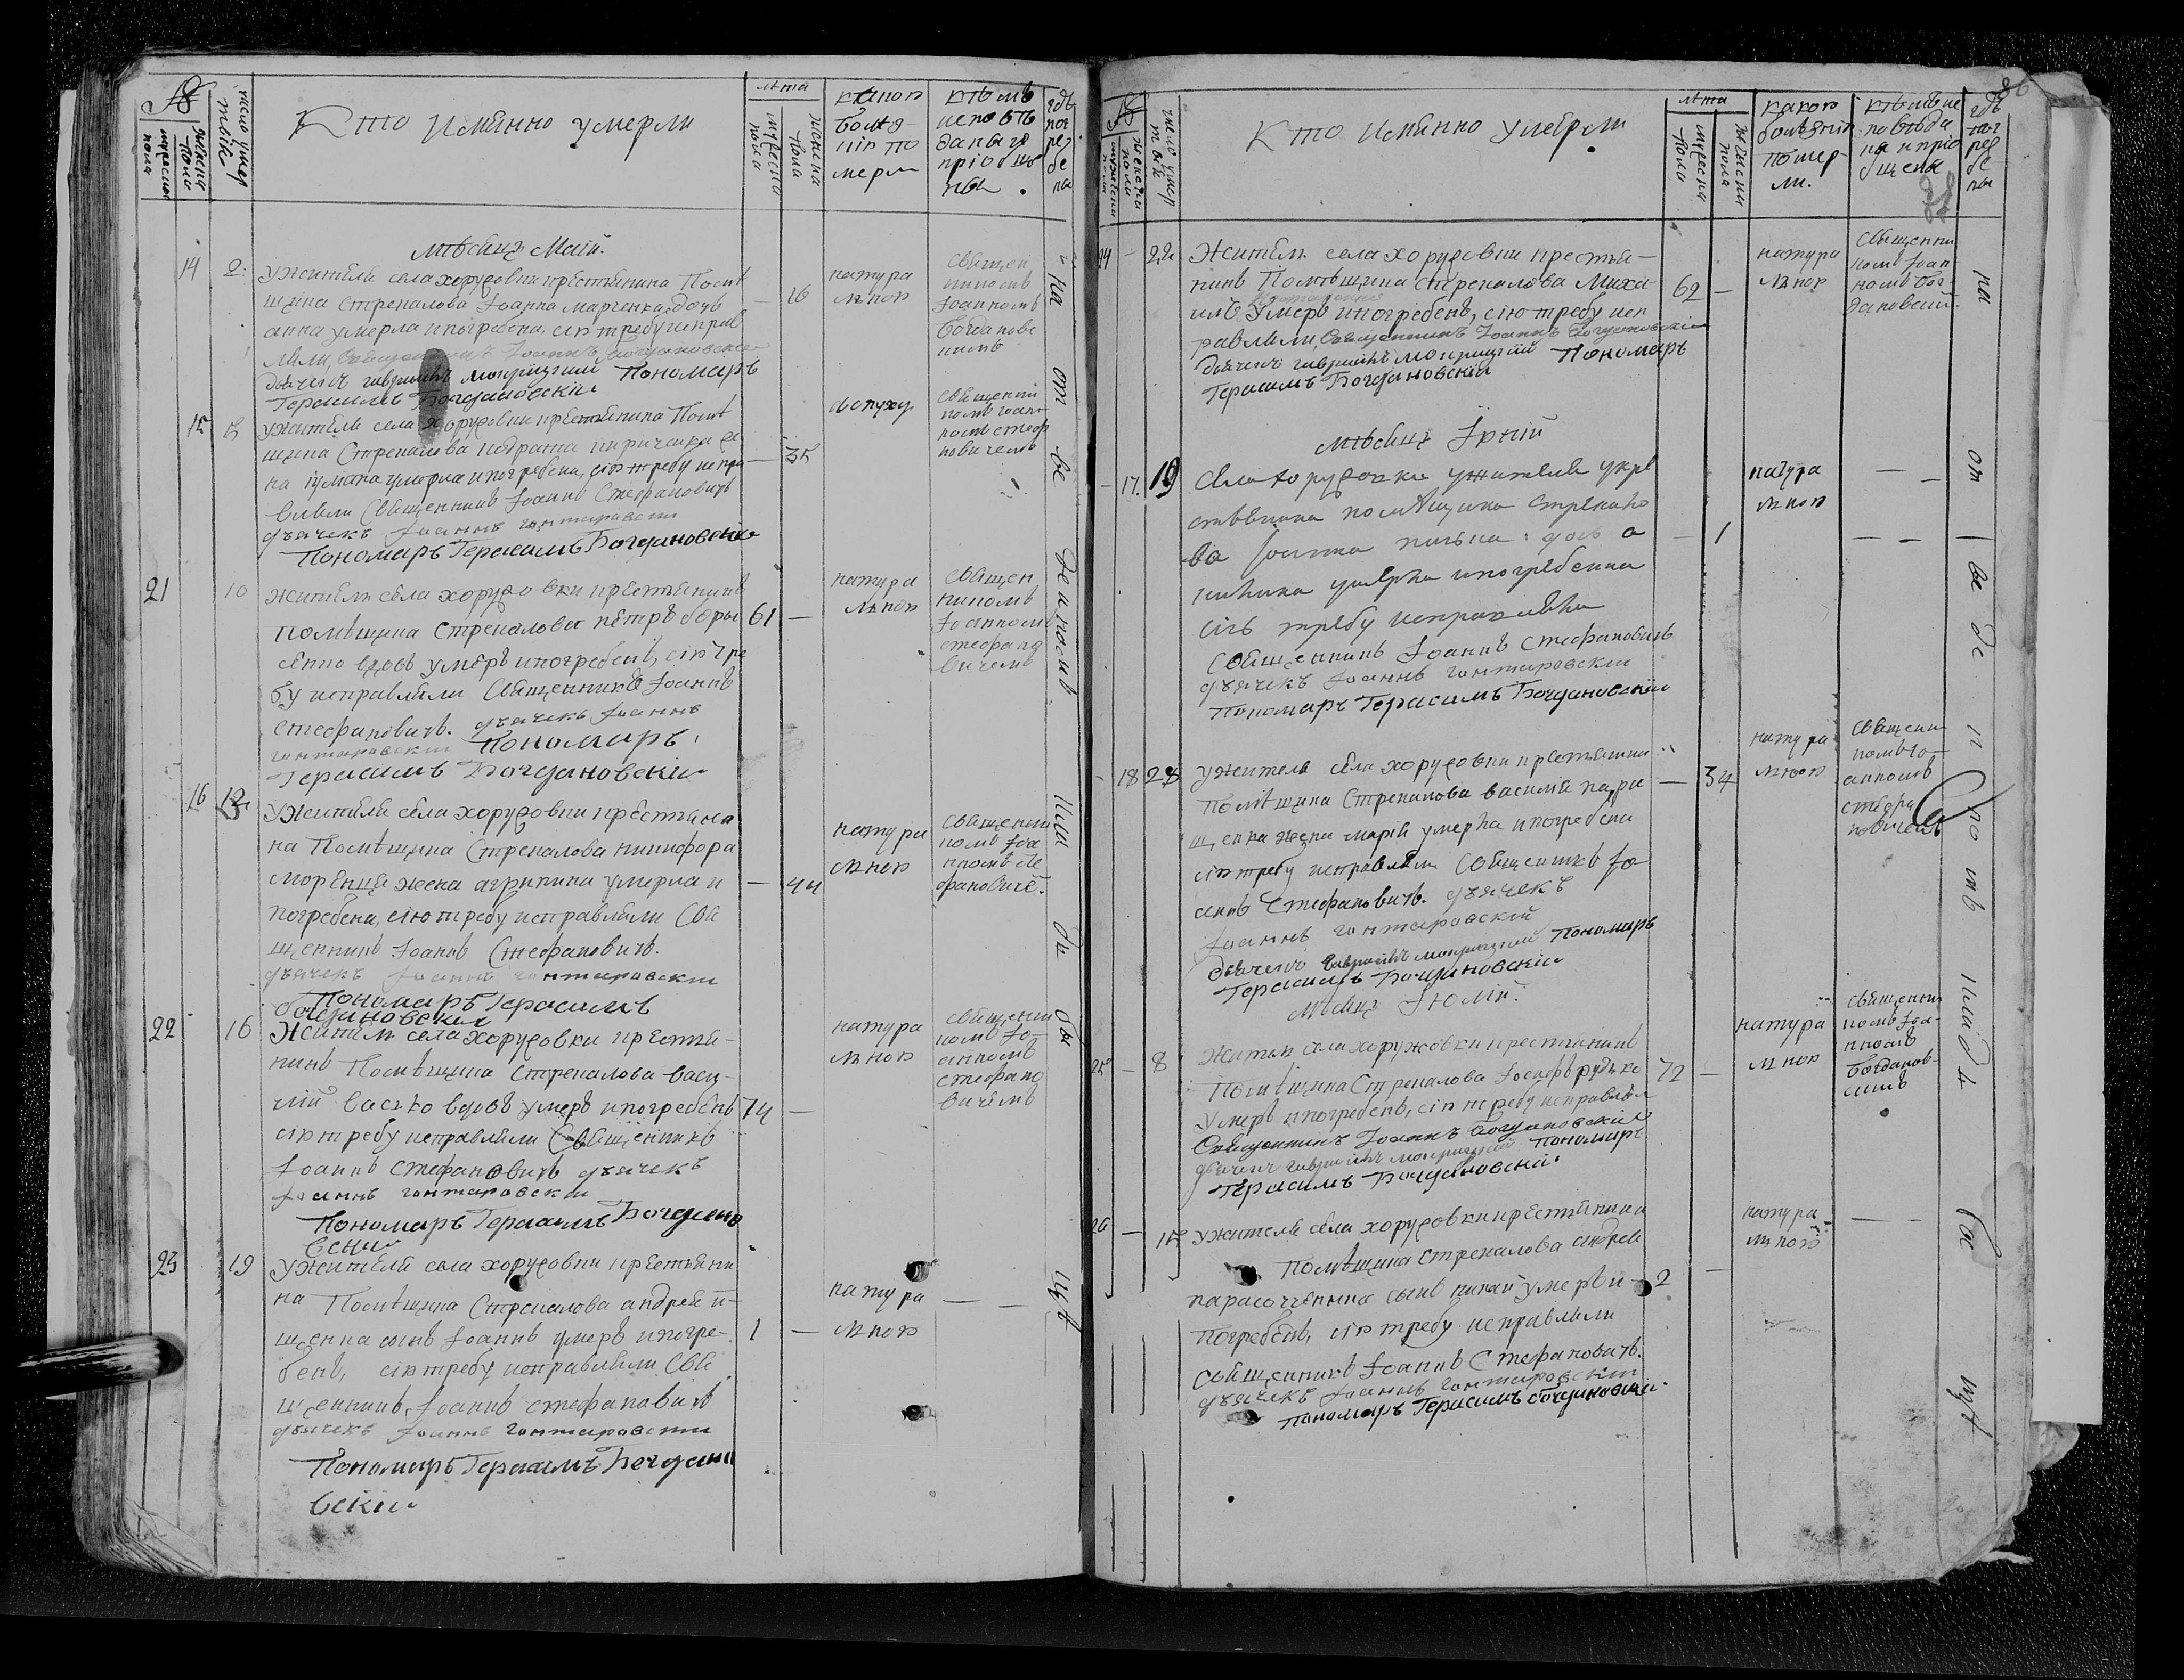 №
мужеска пола
женска пола
число умертвie
Кто имянно умерли
лѣта
мужеска пола
женска пола
какою
болѣз-
нiю по
мерли
кѣмъ
исповѣ
даны и
прiобще
ны.
гдѣ
пог
ре
бе
ны
мѣсяцъ Маiй.
14 2: Ужителя села хоружовки крестянина Помѣ
щика Стрекалова Iоанна марченка дочь
анна умерла и погребена, сiю требу исправ
ляли, Священникъ Iоаннъ Богдановскiй
дьячекъ гаврiилъ Пономарь
Герасимъ Богдановскiй
— 16
натура
лною
Священ
никомъ
Iоанномъ
Богдановс
кимъ
15 5 Ужителя села хоружовки крестянина Помѣ
щика Стрекалова кириченка же
на умерла и погребена, сiю требу испра
вляли Священникъ Iоаннъ Стефановичъ
дьячекъ Iоаннъ гонтаровскiй
Пономарь Герасимъ Богдановскiй
— 35
Священни
комъ Iоан
номъ Стеф
новичемъ
21 10 житель села хоружовки крестянинъ
помѣщика Стрекалова петръ боры
сенко вдовъ умеръ и погребенъ, сiю тре
бу исправляли Священникъ Iоаннъ
Стефановичъ. дьячекъ Iоаннъ
гонтаровскiй Пономарь
Герасимъ Богдановскiй
61 —
натура
лною
Священ
никомъ
Iоанномъ
стефано
вичемъ
16 12 Ужителя села хоружовки крестяни
на Помѣщика Стрекалова никифора
жена агрипина умерла и
погребена, сiю требу исправляли Свя
щенникъ Iоаннъ Стефановичъ.
дьячекъ Iоаннъ гонтаровскiй
Пономарь Герасимъ
богдановскiй
— 44
натура
лною
Священни
комъ Iоа
нномъ Сте
фановиче.
22 16 Житель села хоружовки крестя-
нинъ Помѣщика Стрекалова васи-
лiй васко вдовъ умеръ и погребенъ
сiю требу исправляли Священникъ
Iоаннъ Стефановичъ дьячекъ
Iоаннъ гонтаровскiй
Пономарь Герасимъ Богдано
вскiй
74 —
натура
лною
Священни
комъ Iо-
анномъ
стефано
вичемъ
23 19 Ужителя села хоружовки крестяни
на Помѣщика Стрекалова андрея
щенка сынъ Iоаннъ умеръ и погре-
бенъ, сiю требу исправляли Свя
щенникъ, Iоаннъ стефановичъ
дьячекъ Iоаннъ гонтаровскiй
Пономарь Герасимъ Богдано
вскiй
1 —
натура
лною
— —
на от ве
86
№
мужеска пола
женска пола
Кто имянно умерли
лѣта
мужеска пола
женска пола
какою
болѣзнiю
помер-
ли.
кѣмъ ис
повѣда
на и прiо
бщена
гдѣ
пог
ре
бе
ны
24 — 22 Житель села хоружовки крестя-
нинъ Помѣщика Стрекалова Миха
илъ умеръ и погребенъ, сiю требу исп
равляли, Священникъ Iоаннъ Богдановскiй
дьячекъ гаврiилъ Пономарь
Герасимъ Богдановскiй
62 —
натура
лною
Священни
комъ Iоан
номъ Бог-
дановскимъ
мѣсяцъ Iюнiй
— 17. 19 Села хоружовки ужителя кре
стянина помѣщика Стрекало
ва Iоанна дочь а
килина умерла и погребенна
сiю требу исправляли
Священникъ Iоаннъ Стефановичъ
дьячекъ Iоаннъ гонтаровскiй
Пономарь Герасимъ Богдановскiй
— 1
натура
лною
— —
— 18 28 Ужителя села хоружовки крестянина
Помѣщика Стрекалова василiя
щенка жена марiя умерла и погребена
сiю требу исправляли Священникъ Iо
аннъ Стефановичъ. дьячекъ
Iоаннъ гонтаровскiй
дьячекъ гаврiилъ Пономарь
Герасимъ Богдановскiй
— 34
натура
лною
Священи
комъ Iо
анномъ
стефа
новичемъ
мѣсяцъ Iюлiй.
25 — 8 Житель села хоружовки крестянинъ
Помѣщика Стрекалова Iосифъ рудько
умеръ и погребенъ, сiю требу исправляли
Священникъ Iоаннъ Богдановскiй
дьячекъ гаврiилъ Пономарь
Герасимъ Богдановскiй.
72 —
натура
лною
Священни
комъ Iоа-
нномъ
Богданов-
симъ
26 — 15 Ужителя села хоружовки крестянина
Помѣщика Стрекалова андрея
сынъ умеръ и
погребенъ, сiю требу исправляли
священникъ Iоаннъ Стефановичъ.
дьячекъ Iоаннъ гонтаровскiй
Пономарь Герасимъ богдановскiй.
2 —
натура
лною
— —
на от ве де